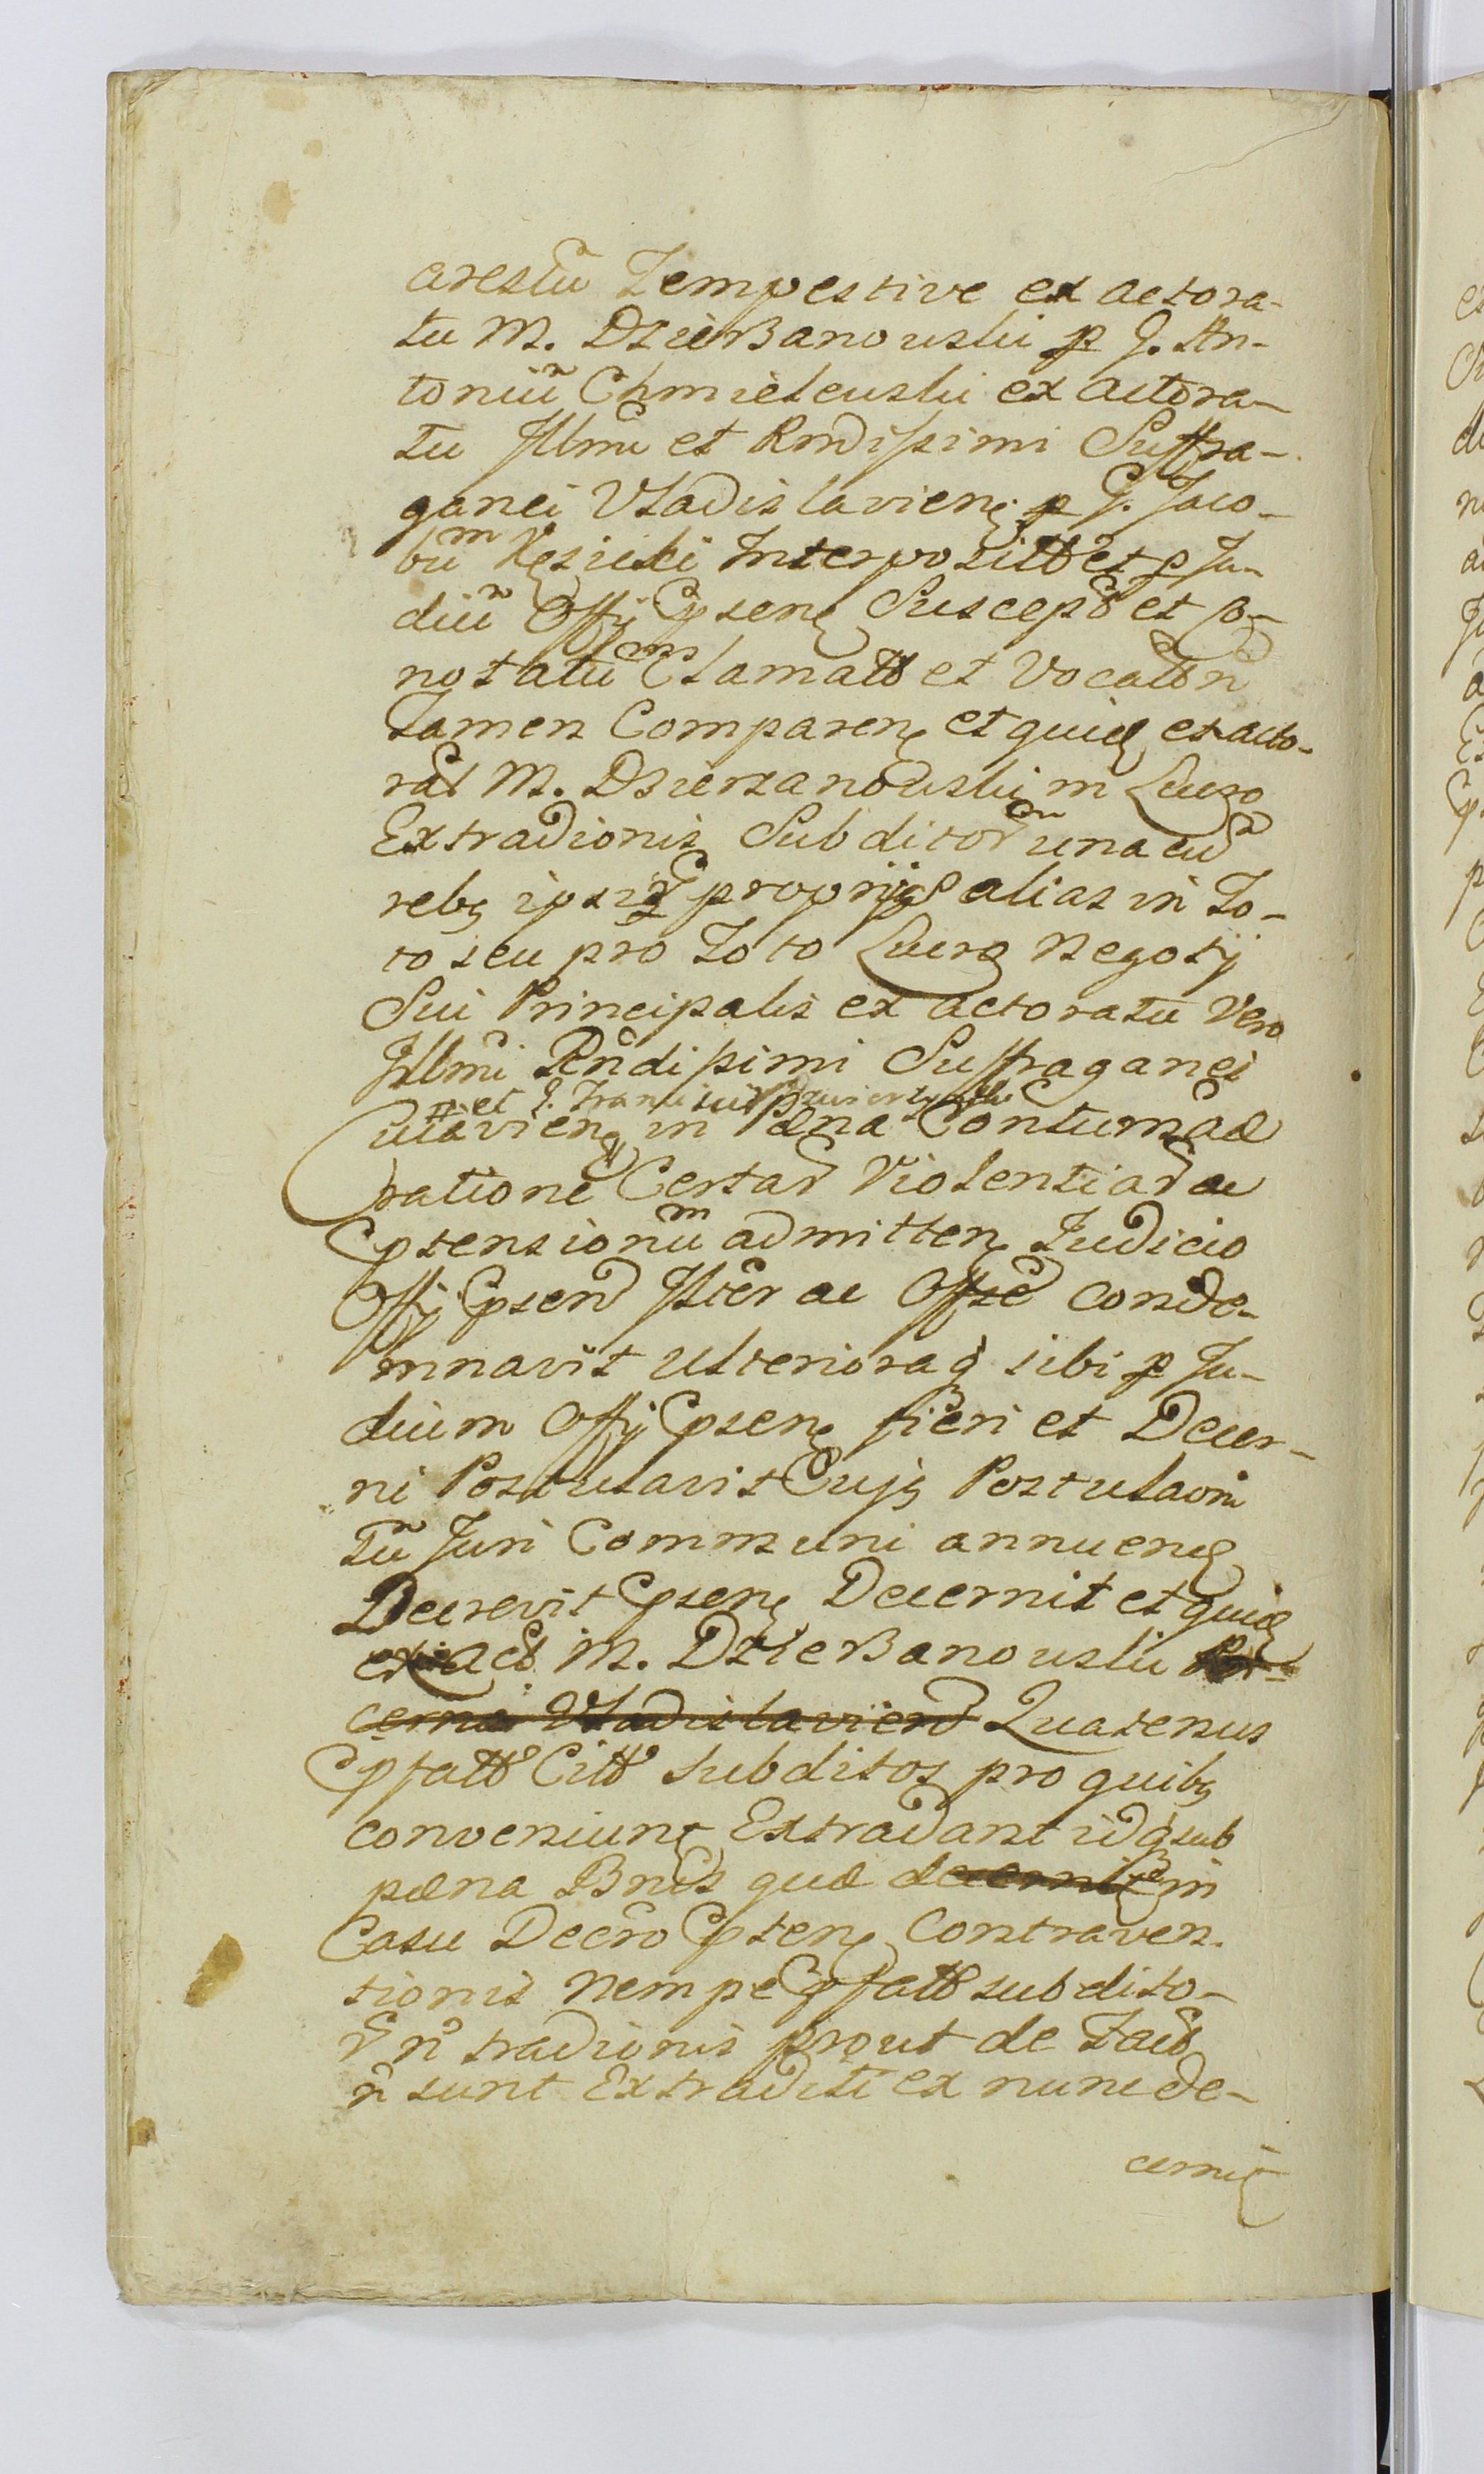 arestũ Tempestive ex actora-
tu M. DzieBanowski p G. An-
toniũ Chmielewski ex actora-
tu Jllmi et Rmdissimi Suffra-
ganei Vladislavien p G. Jaco-
bum Interposit et p Ju-
diũ Offij Suscept et
notatũ Clamatt et Vocat n
Tamen Comparen et quid ex acto-
rat M. Dzierzanowski in Lucro
Extradionis Subditor una cũ
rebq propriis alias in To-
to seu pro Toto Lucro Negotij
Sui Principalis ex actoratu Vero
Jllmi Rndissimi Suffraganei
et G. Francisci
Cuiavien in Pæna Contumac
ratione Certar Violentiar ac
Cptensionum admitten Judicio
Offij Cpsen Jllter ac Offse conde-
mnavit Ulterioraq sibi p Ju-
dium Offij Cpsen fieri et Decer-
ni Postulavit Cujq Postulaoni
tũ Juri Communi annuend
Decrevit Cpsen Decernit et quid
ex act M. DzieBanowski
cerna Vladislavien Quatenus
Cpfatt Citt subditos pro quibq
conveniunt Extradant idq sub
pæna Bnis quæ decernit in
Casu Decro Cpten Contraven-
tionis Nempe Cpfatt subdito-
r n tradionis prout de Facto
n sunt Extraditi ex nunc de-
cernit